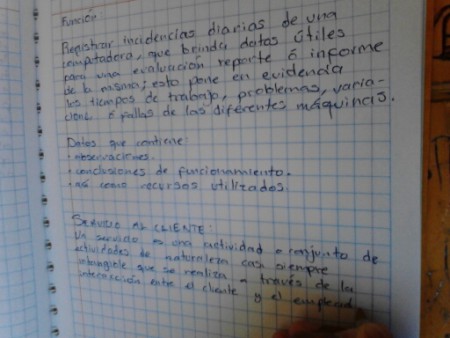 Función:
Registrar incidencias diarias de una
computadora, que brinda datos útiles
para una evaluación reporte ó informe
de la misma; esto pone en evidencia
los tiempos de trabajo, problemas, varia-
cione ó fallas de las diferentes máquinas.
Datos que contiene:
• observaciones.
• conclusiones de funcionamiento.
• así como recursos utilizados.
SERVICIO AL CLIENTE:
Un servicio es una actividad o conjunto de
actividades de naturaleza casi siempre
intangible que se realiza a través de la
interacción entre el cliente y el emplead